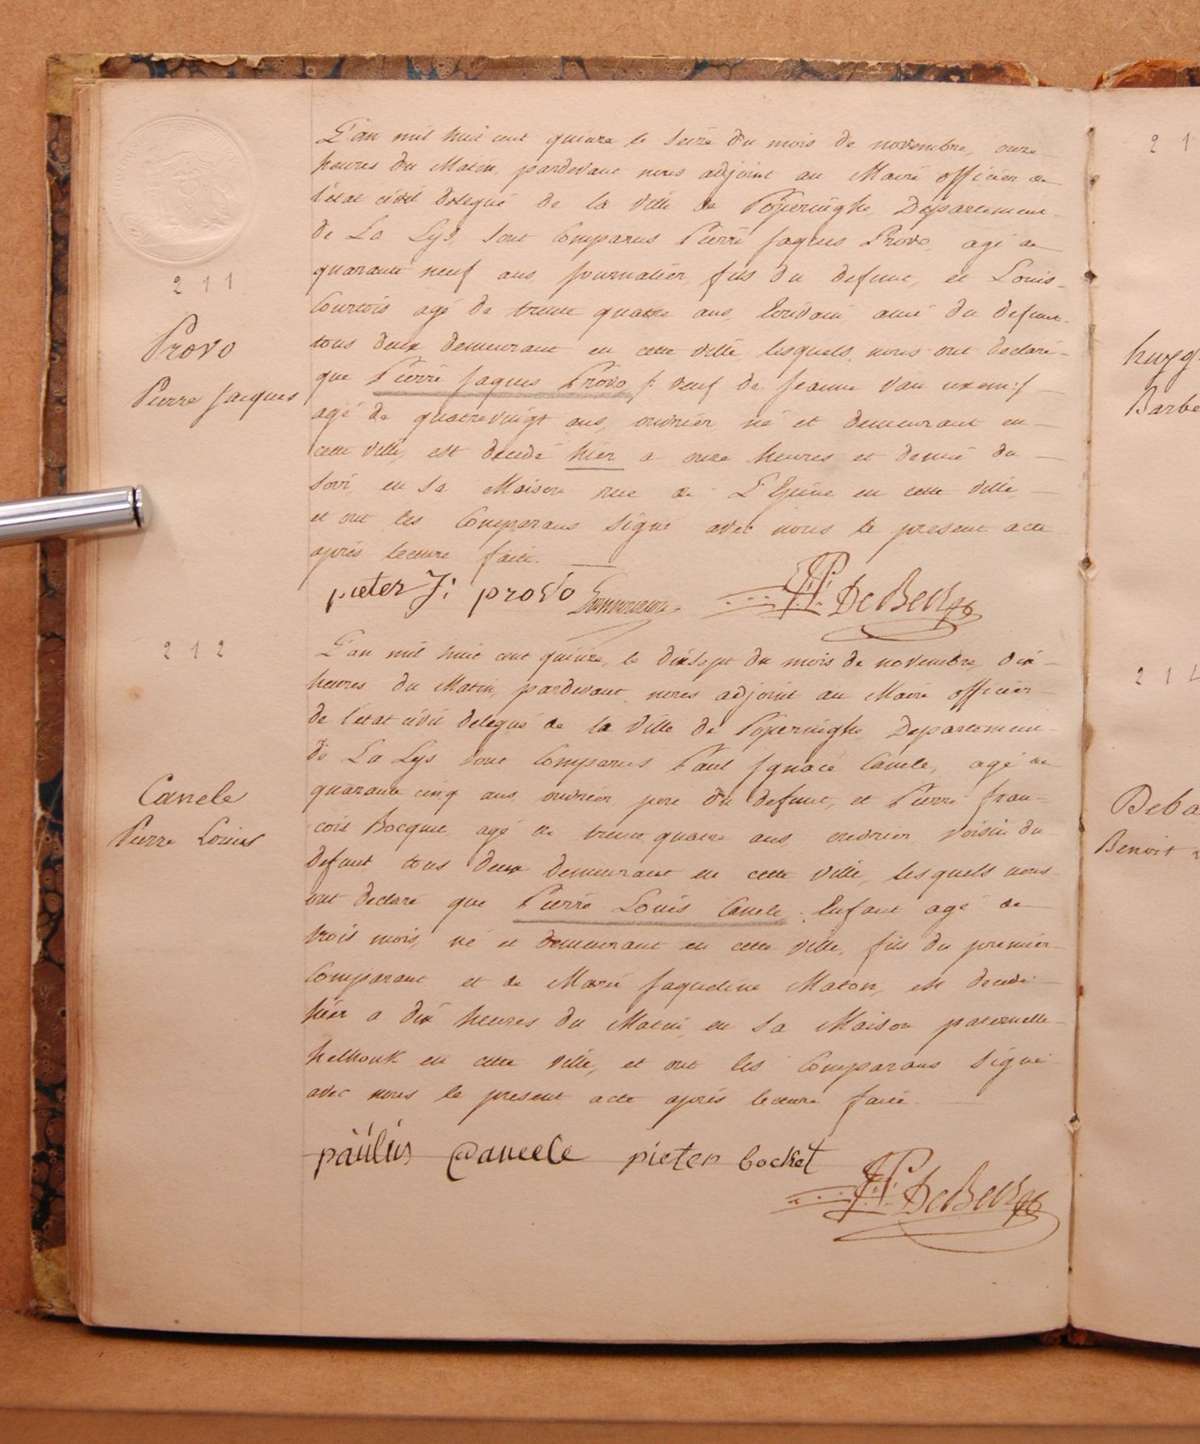 211
Provo
Pierre Jacques
L'an mil huit cent quinze le seize du mois de novembre, onze
heures du Matin, pardevant nous adjoint au Maire officier de
l'état civil delegué de la Ville de Poperinghe Departement
de La Lys, sont Comparus Pierre Jaques Provo, agé de
quarante neuf ans, Journalier, fils du defunt, et Louis
Courtois agé de trente quatre ans, amie du defunt
tous deux demeurant en cette ville lesquels, nous ont declaré
que Pierre Jaques Provo /: veuf de Jeanne Van uxem:/
agé de quatrevingt ans, ouvrier né et demeurant en
cette ville, est decedé hier a onze heures et demie du
soir, en sa Maison rue de L'Epine en cette ville
et ont les Comparans signé avec nous le present acte
après lecture faite.
pieter J: provo DeBeck
212
Canele
Pierre Louis
L'an mil huit cent quinze, le dixsept du mois de novembre, dix
heures du Matin, pardevant nous adjoint au Maire officier
de l'état civil delegué de la Ville de Poperinghe Departement
de La Lys sont Comparus Paul Ignace Canele, agé de
quarante cinq ans, ouvrier pere du defunt, et Pierre fran-
cois Bocquet agé de trente quatre ans ouvrier Voisin du
defunt tous deux demeurant en cette ville, lesquels nous
ont declaré que Pierre Louis Canele, Enfant agé de
trois mois, né et demeurant en cette ville, fils du premier
Comparant et de Marie Jaqueline Maton, est decedé
hier a dix heures du Matin, en sa Maison paternelle
helhouk en cette ville, et ont les Comparans signé
avec nous le present acte après lecture faite.
paulus Caneele pieter bocket
DeBeck
21
huyg
Barbe
214
Deba
Benoit